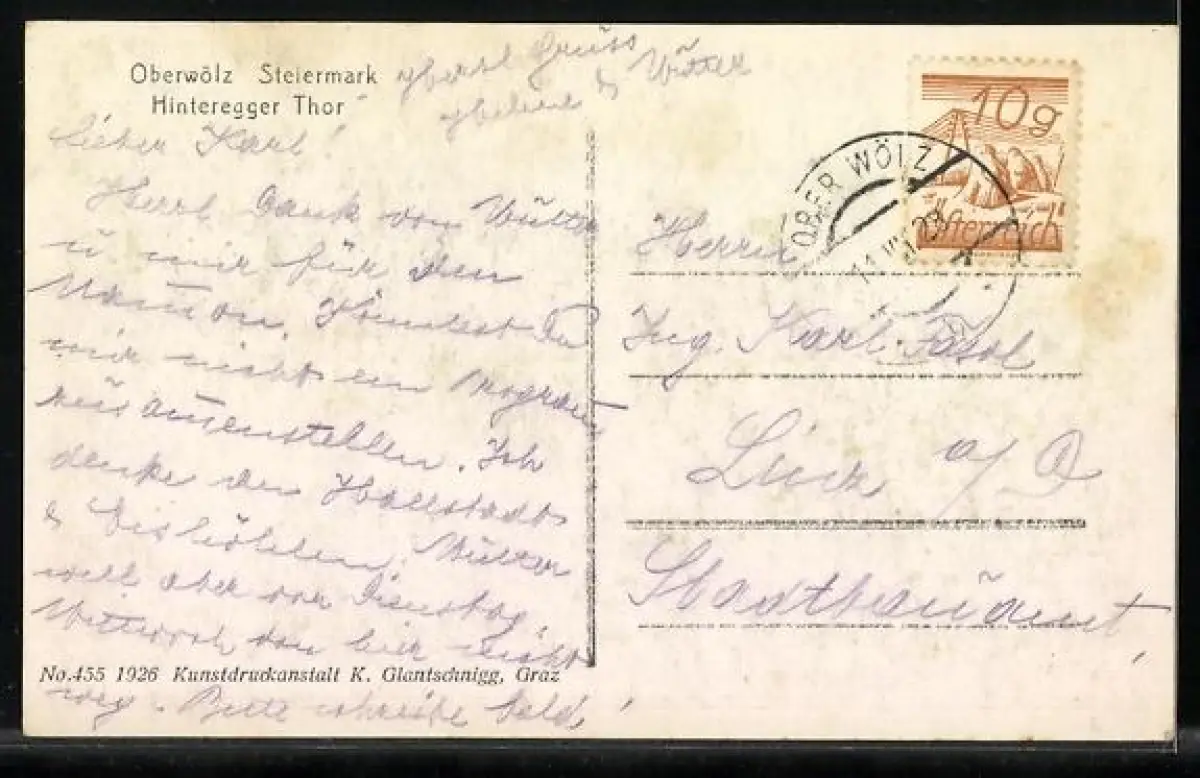 Oberwölz Steiermark
Hinteregger Thor
Herzl Grüss
& Mutter
Lieber Karl!
Herzl. Dank von Mutter
u mir für den
Könntest Du
mir nicht ein Program
zusammenstellen. Ich
denke an Hallstadt
& Eishöhlen. Mutter
will aber vor Dienstag,
Mittwoch von hier nicht
weg. Bitte schreibe bald!
No. 455 1926 Kunstdruckanstalt K. Glantschnigg, Graz
10g
Österreich
OBER WÖLZ
Herrn
Ing. Karl
Linz a/D
Stadtbauamt